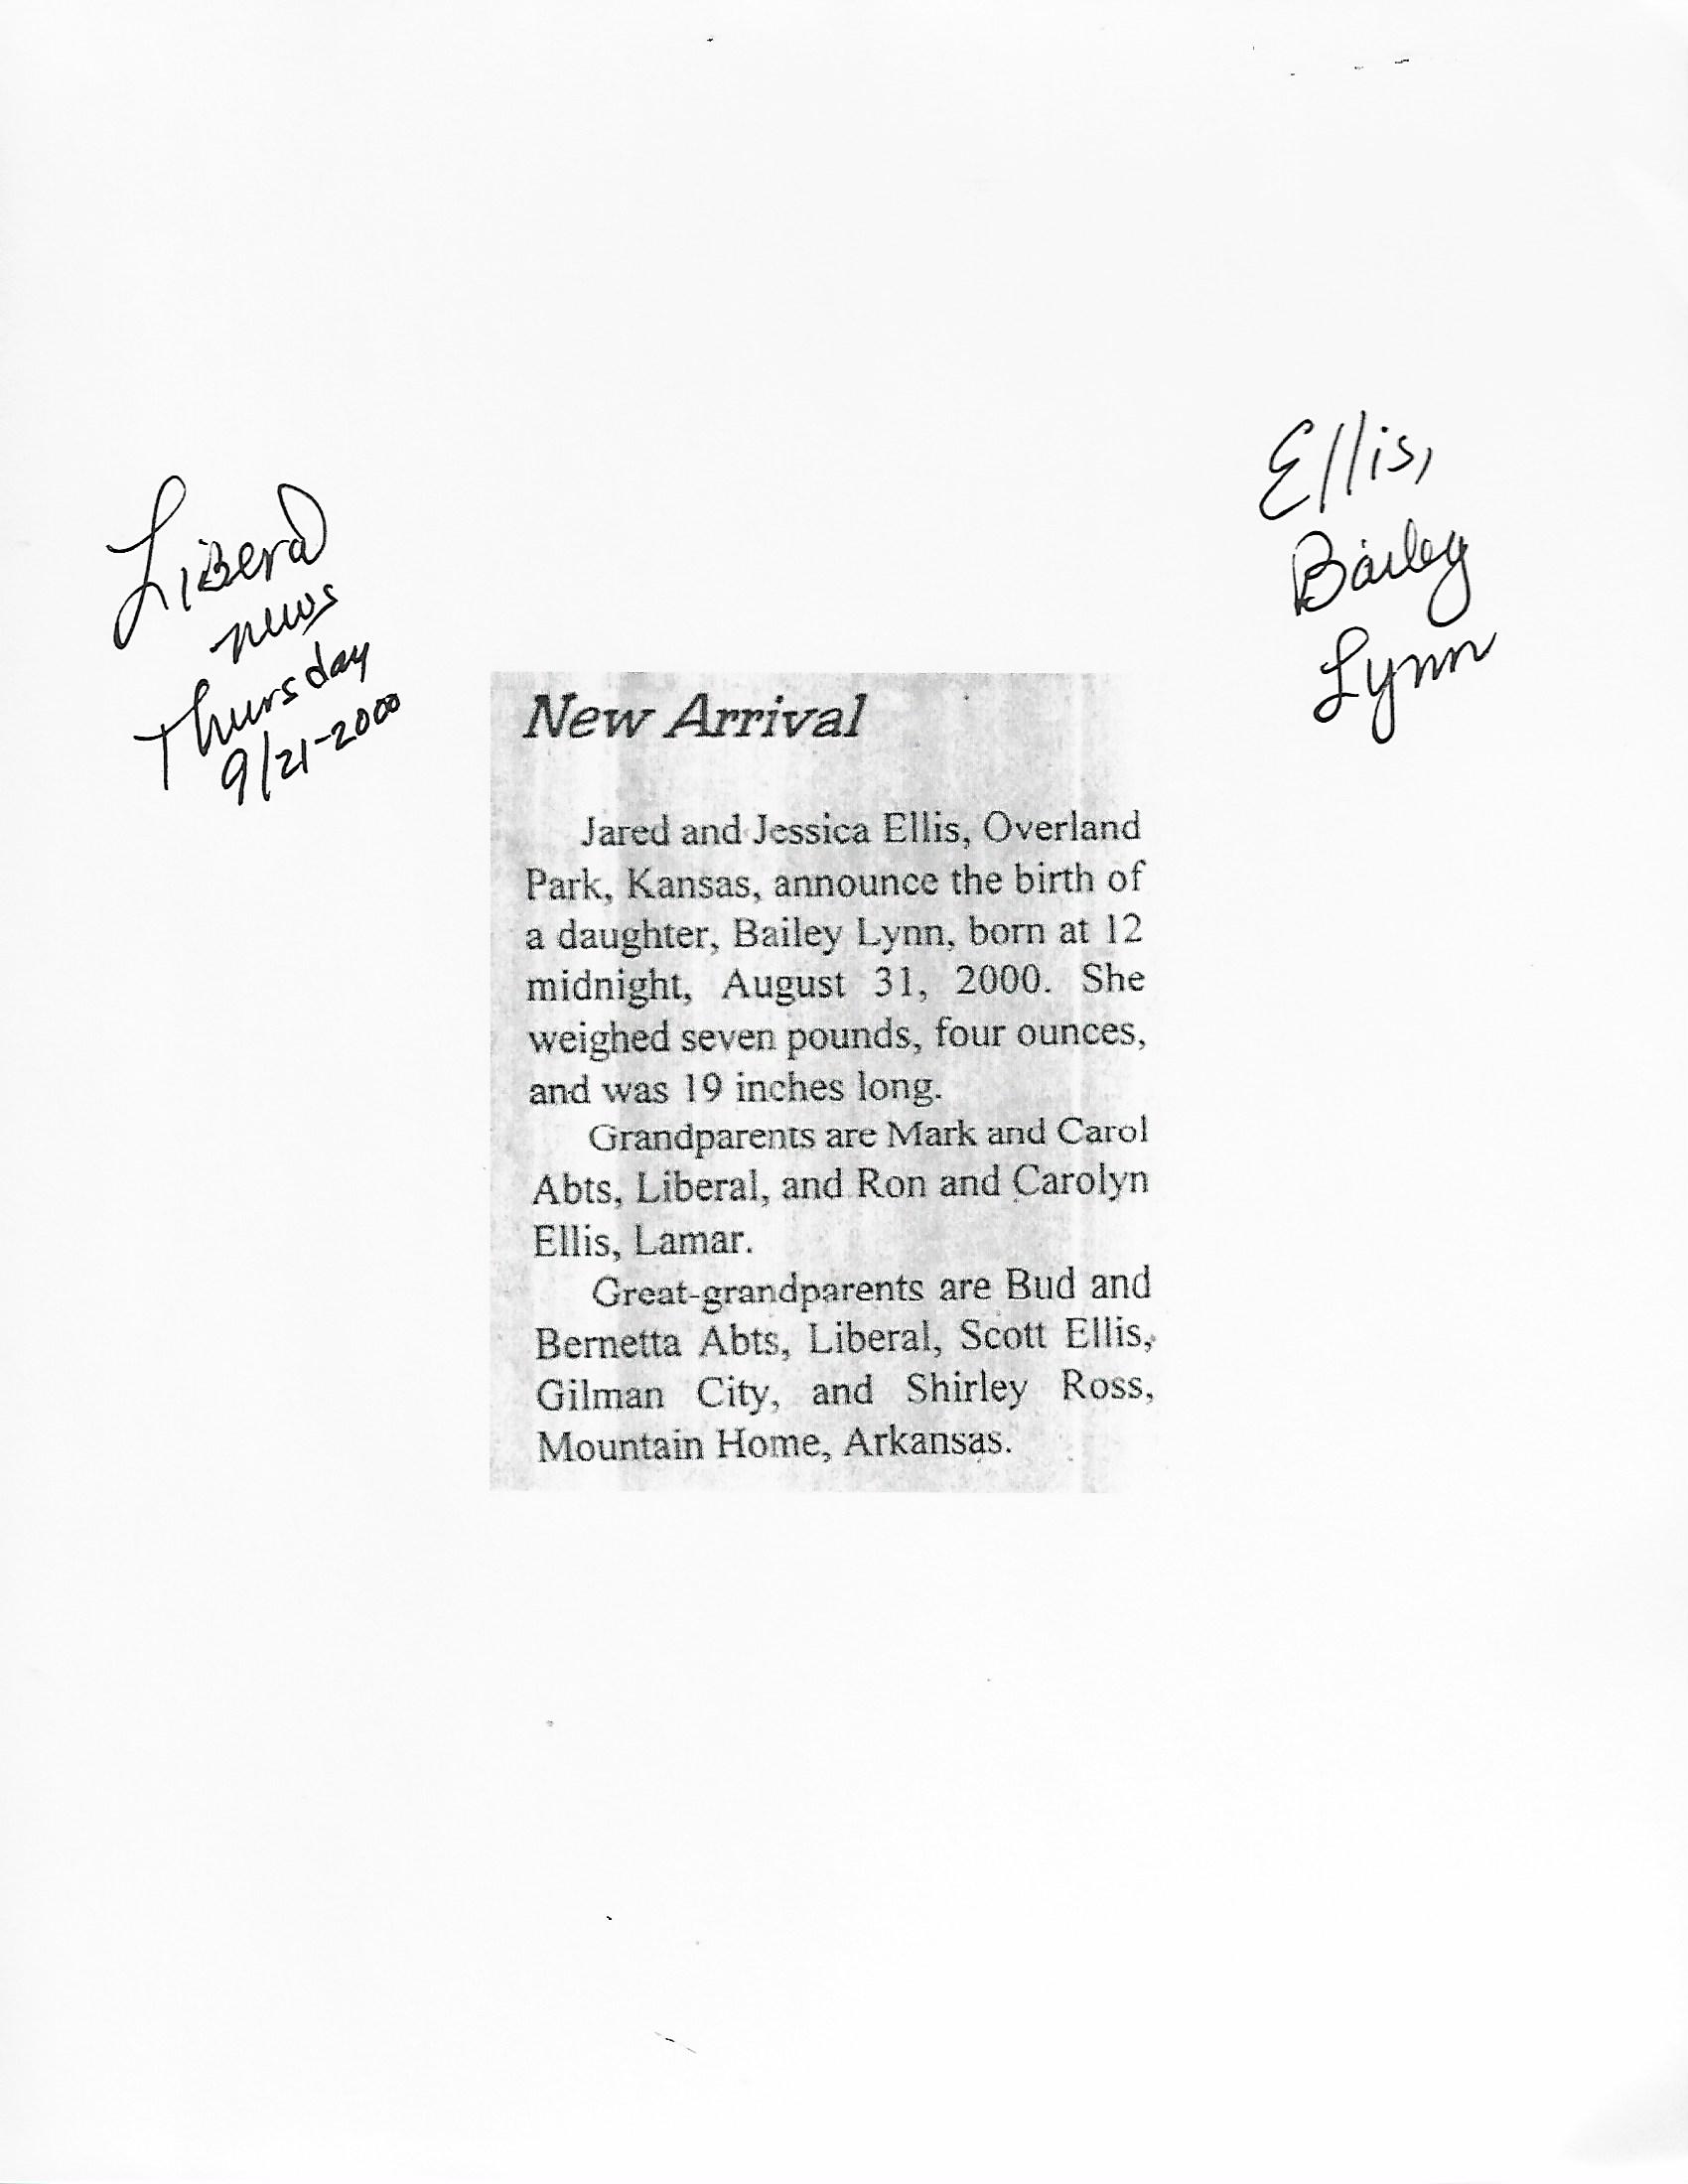 Liberal
news
Thursday
9/21-2000
Ellis,
Bailey
Lynn
New Arrival
Jared and Jessica Ellis, Overland
Park, Kansas, announce the birth of
a daughter, Bailey Lynn, born at 12
midnight, August 31, 2000. She
weighed seven pounds, four ounces,
and was 19 inches long.
Grandparents are Mark and Carol
Abts, Liberal, and Ron and Carolyn
Ellis, Lamar.
Great-grandparents are Bud and
Bernetta Abts, Liberal, Scott Ellis,
Gilman City, and Shirley Ross,
Mountain Home, Arkansas.